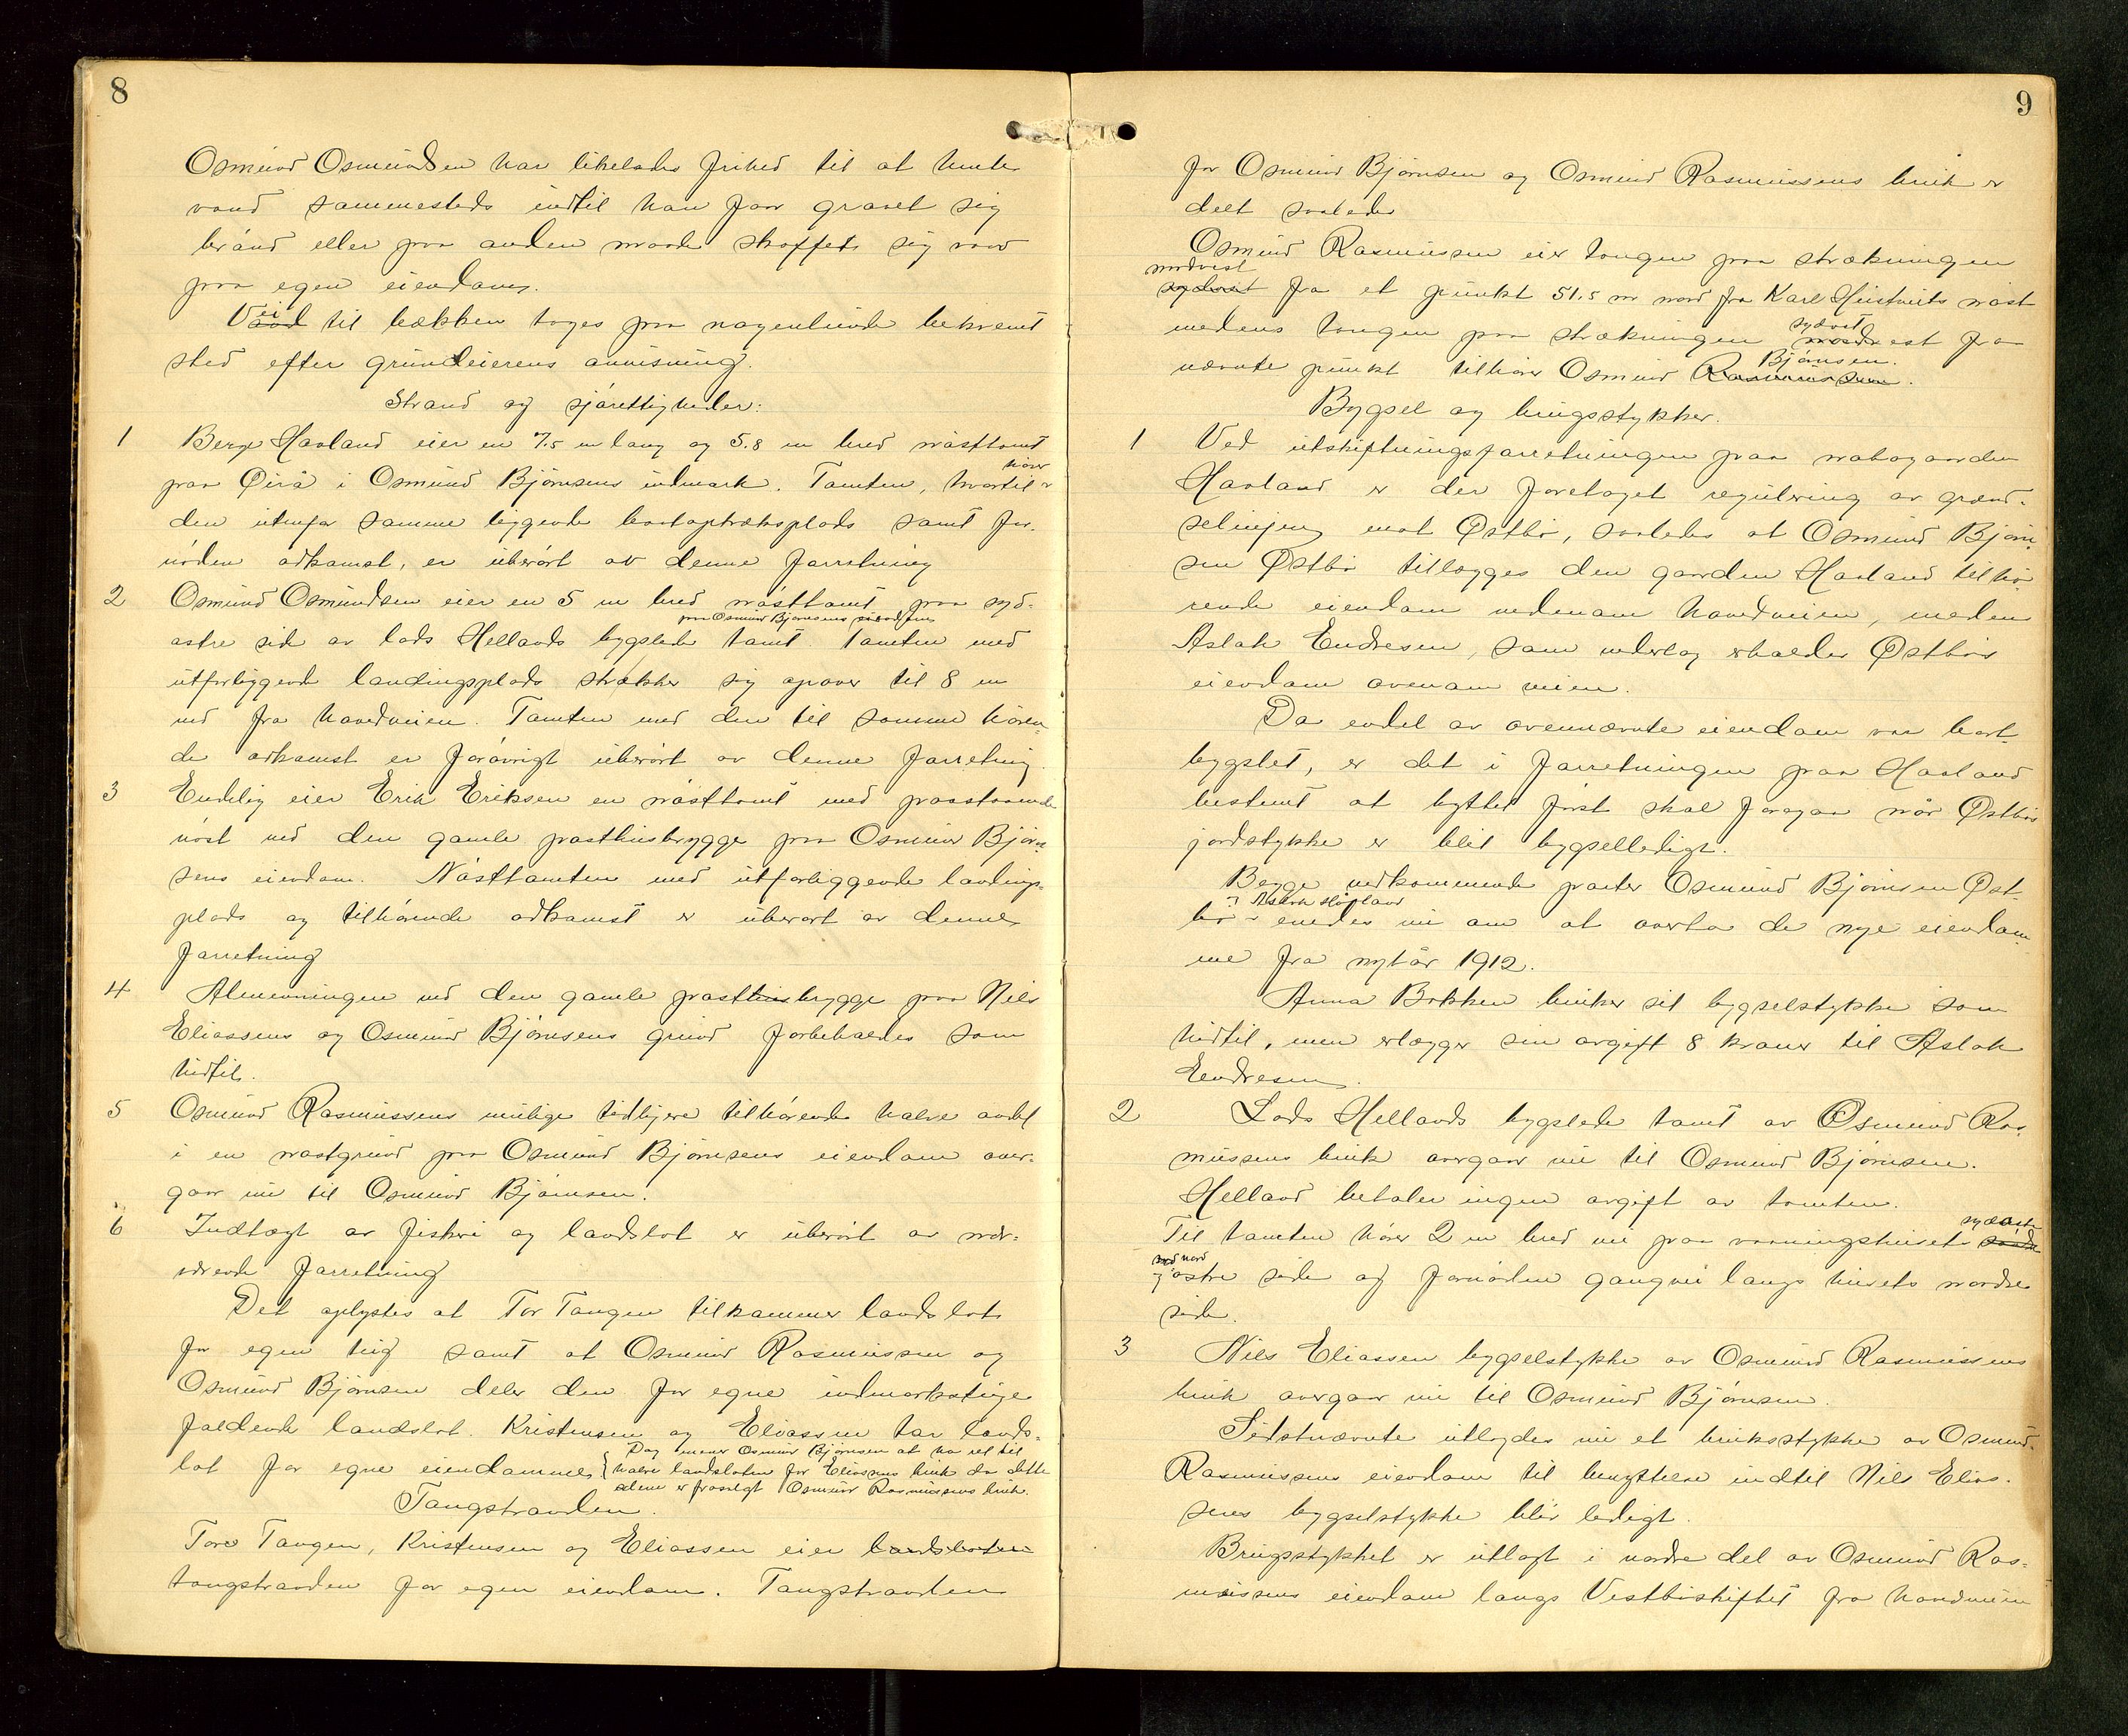 8
Osmund Osmundsen har likeledes frihed til at hente
vand sammesteds indtil han faar gravet sig
brønd eller paa anden maade skaffet sig vand
paa egen eiendom.
Vei til bækken tages paa nogenlunde bekvemt
sted efter grundeierens anvisning.
Strand og sjørettigheder:
1 Berge Havland eier en 7.5 m lang og 5.8 m bred nøsttomt
paa Øirå i Osmund Bjørnsens indmark. Tomten, hvortil hører
den utenfor samme liggende baatoptræksplads samt for-
nøden adkomst, er uberørt av denne forretning
2 Osmund Osmundsen eier en 5 m bred nøsttomt paa syd-
østre side av Lods Hellands bygslede tomt paa Osmund Bjørnsens eiendom. Tomten med
utforliggende landingsplads strækker sig opover til 8 m
ned fra hovedveien. Tomten med den til samme høren-
de adkomst er forøvrigt uberørt av denne forretning.
3 Endelig eier Erik Eriksen en nøsttomt med paastaaende
nøst ved den gamle posthusbrygge paa Osmund Bjørn-
sens eiendom. Nøsttomten med utforliggende landings-
plads og tilhørende adkomst er uberørt av denne
forretning
4 Almenningen ved den gamle posthusbrygge paa Nils
Eliassens og Osmund Bjørnsens grund forbeholdes som
hidtil.
5 Osmund Rasmussens mulige tidligere tilhørende halve andel
i en nøstgrund paa Osmund Bjørnsens eiendom over-
gaar nu til Osmund Bjørnsen.
6 Indtægt av fiskeri og landslot er uberørt av nær-
værende forretning
Det oplystes at Tor Tangen tilkommer landslot
for egen teig samt at Osmund Rasmussen og
Osmund Bjørnsen deler den for egne indmarksteige
faldende landslot. Kristensen og Eliassen tar lands-
lot for egne eiendomme. { Dog mener Osmund Bjørnsen at ha ret til
halve landsloten for Eliassens bruk da dette
alene er fraselgt Osmund Rasmussens bruk.
Tangstranden.
Tore Tangen, Kristensen og Eliassen eier landsloten
tangstranden for egen eiendom. Tangstranden
9
for Osmund Bjørnsen og Osmund Rasmussens bruk er
delt saaledes
Osmund Rasmussen eier tangen paa strækningen
nordvest
sydøst fra et punkt 51.5 m nord fra Karl Hustveits nøst
medens tangen paa strækningen sydøst nordvest fra
nævnte punkt tilhører Osmund Bjørnsen. Rasmussen.
Bygsel og brugsstykker.
1 Ved utskiftningsforretningen paa nabogaarden
Havland er der foretaget regulering av grænd-
selinjen mot Østbø, saaledes at Osmund Bjørn-
sen Østbø tillægges den gaarden Havland tilhø-
rende eiendom nedenom hovedveien, medens
Aslak Endresen, som vederlag erholder Østbøs
eiendom ovenom veien.
Da endel av ovennævnte eiendom var bort-
bygslet, er det i forretningen paa Havland
bestemt at byttet først skal foregaa når Østbøs
jordstykke er blit bygselledigt.
Begge vedkommende parter Osmund Bjørnsen Øst-
bø og Aslak Havland enedes nu om at overta de nye eiendom-
me fra nytår 1912.
Anna Bokken bruker sit bygselstykke som
hidtil, men erlægger sin avgift 8 kroner til Aslak
Endresen.
2 Lods Hellands bygslede tomt av Osmund Ras-
mussens bruk overgaar nu til Osmund Bjørnsen.
Helland betaler ingen avgift av tomten.
Til tomten hører 2 m bred vei paa vaaningshusets sydøstre
og nord
østre side og fornøden gangvei langs husets nordre
side.
3 Nils Eliassen bygselstykke av Osmund Rasmussens
bruk overgaar nu til Osmund Bjørnsen.
Sidstnævnte utlægdes nu et bruksstykke av Osmund
Rasmussens eiendom til benyttelse indtil Nils Elias-
sens bygselstykke blir ledigt.
Brugsstykket er utlagt i nordre del av Osmund Ras-
mussens eiendom langs Vestbøskiftet fra hovedveien